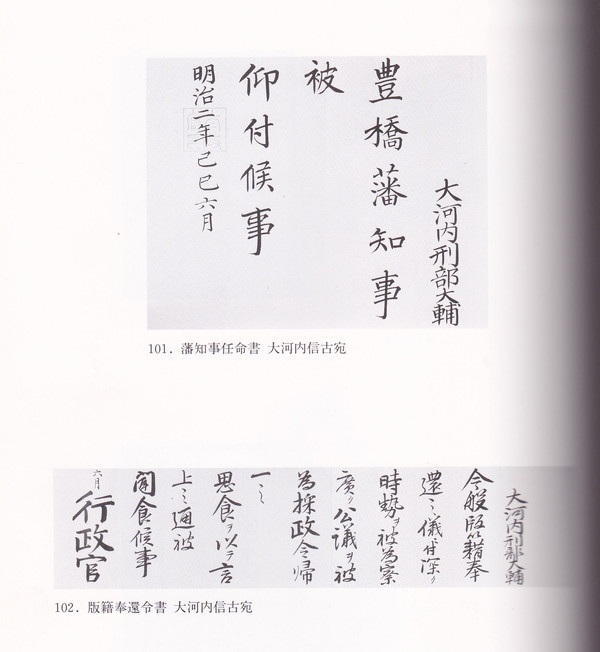 大河内刑部大輔
豊橋藩知事
被
仰付候事
明治二年己巳六月
101．藩知事任命書 大河内信古宛
大河内刑部大輔
今般版籍奉
還之儀ニ付深ク
時勢ヲ被為察
広ク公議ヲ被
為採政令帰
一之
思食ヲ以テ言
上之通被
聞食候事
六月
行政官
102．版籍奉還令書 大河内信古宛